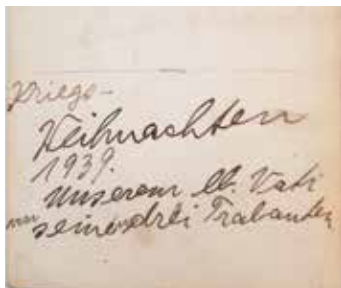 Kriegs-
Weihnachten
1939.
Unserem lb. Vati
von seinen drei Trabanten